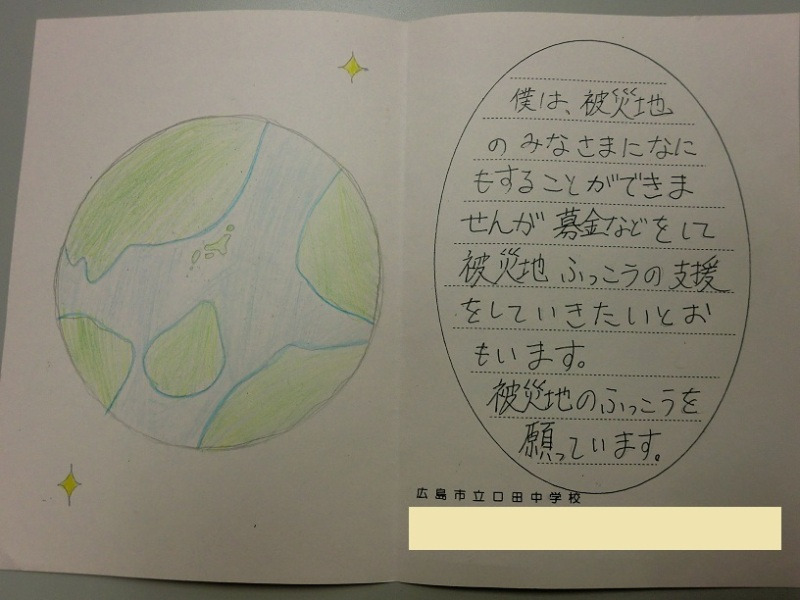 僕は、被災地
のみなさまになに
もすることができま
せんが募金などをして
被災地ふっこうの支援
をしていきたいとお
もいます。
被災地のふっこうを
願っています。
広島市立口田中学校